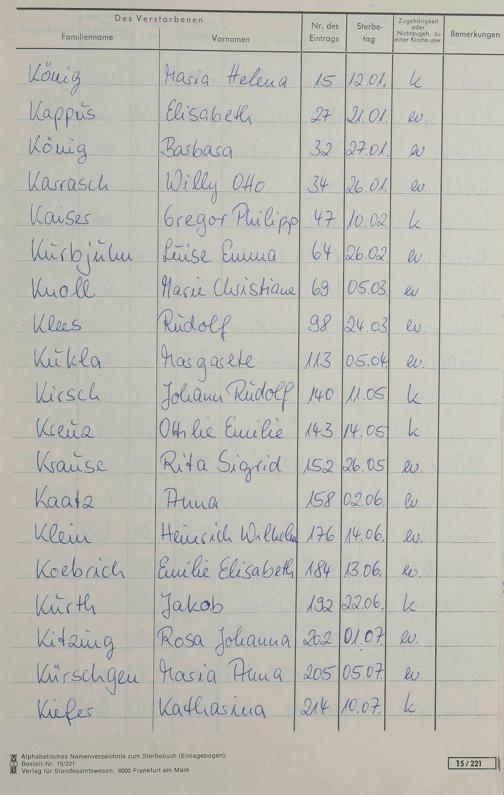 Des Verstorbenen
Familienname Vornamen Nr. des Eintrags Sterbetag Zugehörigkeit oder Nichtzugeh. zu einer Kirche usw. Bemerkungen
König Maria Helena 15 12.01. k
Kappus Elisabeth 27 21.01. ev.
König Barbara 32 27.01. ev
Karrasch Willy Otto 34 26.01. ev
Kaiser Gregor Philipp 47 10.02 k
Kurbjuhn Luise Emma 64 26.02 ev.
Knoll Marie Christiane 69 05.03 ev
Klees Rudolf 98 24.03 ev.
Kukla Margarete 113 05.04 ev.
Kirsch Johann Rudolf 140 11.05 k
Ottilie Emilie 143 14.05 k
Krause Rita Sigrid 152 26.05 ev.
Kaatz Anna 158 02.06. ev
Klein Heinrich Wilhelm 176 14.06. ev.
Koebrich Emilie Elisabeth 184 13.06. ev.
Kurth Jakob 192 22.06. k
Kitzing Rosa Johanna 202 01.07. ev.
Kürschgen Maria Anna 205 05.07. ev.
Kiefer Katharina 214 10.07. k
Alphabetisches Namenverzeichnis zum Sterbebuch (Einlagebogen).
Bestell-Nr. 15/221
Verlag für Standesamtswesen, 6000 Frankfurt am Main
15/221